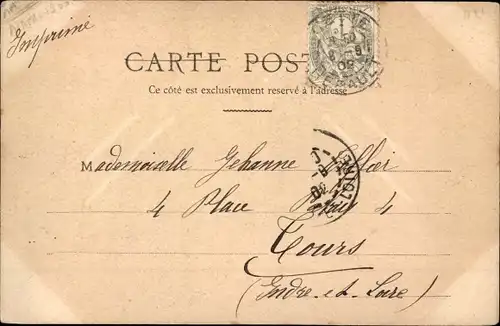 Imprimé
CARTE POST
Ce côté est exclusivement reservé à l'adresse
HERAULT
Mademoiselle Jehanne
4 Place 4
Tours
(Indre-et-Loire)